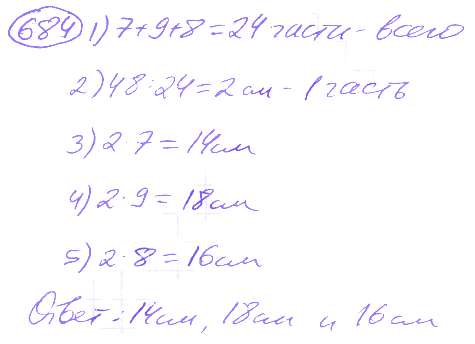 684 1) 7+9+8=24 части - всего
2) 48:24=2 см - 1 часть
3) 2·7=14 см
4) 2·9=18 см
5) 2·8=16 см
Ответ: 14 см, 18 см и 16 см